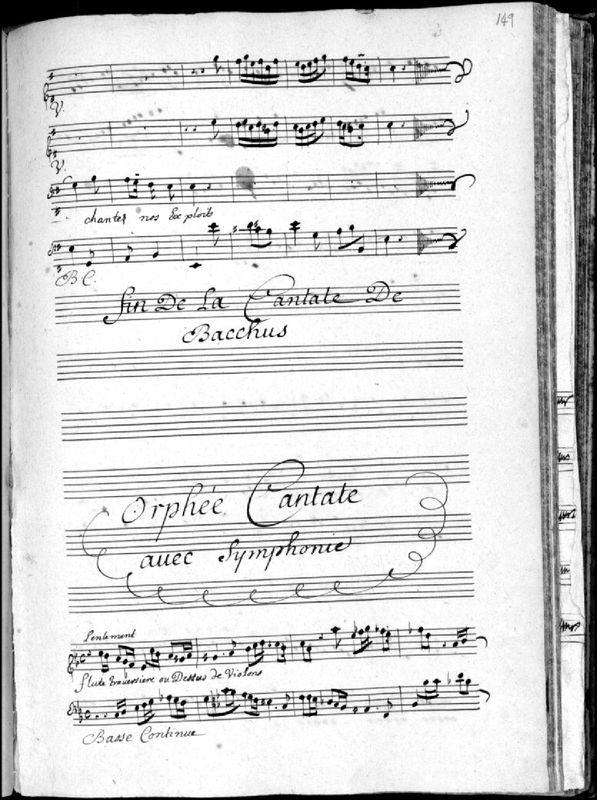 149
V.
V.
chanter nos Exploits
B C.
fin De La Cantate De
Bacchus
Orphée Cantate
auec Symphonie
Lentement
flute traversiere ou Dessus de Violons
Basse Continue